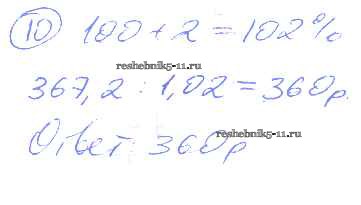 10 100 + 2 = 102 %
reshebnik5-11.ru
367,2 : 1,02 = 360р.
reshebnik5-11.ru
Ответ 360р